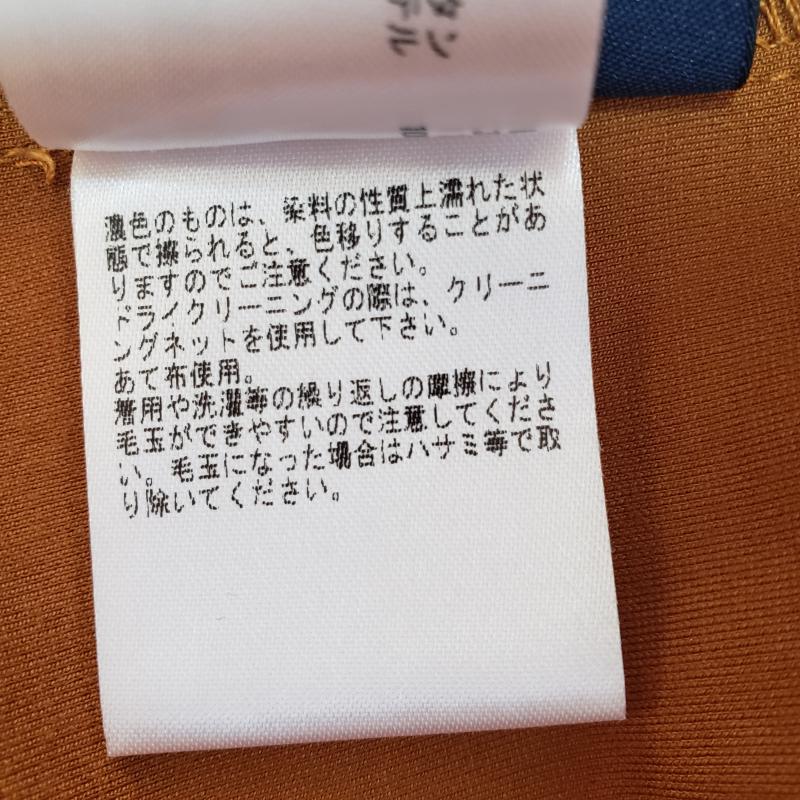 タン
テル
濃色のものは、染料の性質上濡れた状
態で擦られると、色移りすることがあ
りますのでご注意ください。
ドライクリーニングの際は、クリーニ
ングネットを使用して下さい。
あて布使用。
着用や洗濯等の繰り返しの摩擦により
毛玉ができやすいので注意してくださ
い。毛玉になった場合はハサミ等で取
り除いてください。